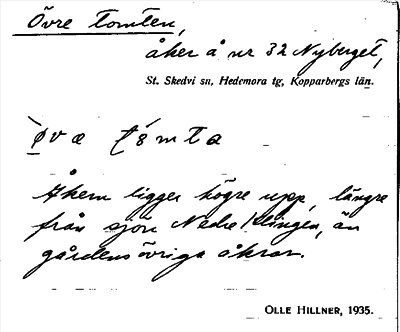 Övre Tomten,
åker å nr 32 Nyberget,
St. Skedvi sn, Hedemora tg, Kopparbergs län.
Åkern ligger högre upp, längre
från sjön Nedre Klingen, än
gårdens övriga åkrar.
OLLE HILLNER, 1935.